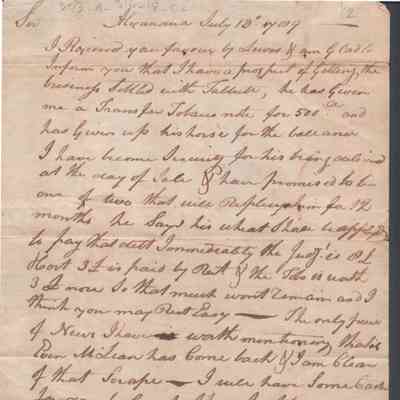 Sir Alexandria July 12th 1789
I Received your favour by Lewis & am Glad to
Inform you that I have a prospect of Getting the
business Settled with Talbutt, he has Given
me a Transfer Tobaco note for 500 and
has Given up his horse for the ballance
I have become Security for his being delivered
at the day of Sale & have promised to be
one of two that will Replevy him for 12
months he Says his wheat Shall be applied
to pay that debt Immediately the Judgt is
3£ is paid by Rent & the Tobo is worth
3£ more So that much wont Remain and I
think you may Rest Easy — The only piece
of News I have worth mentioning that is
Even McLean has Come back & I am Clear
of that Scrape — I will have Some Cash